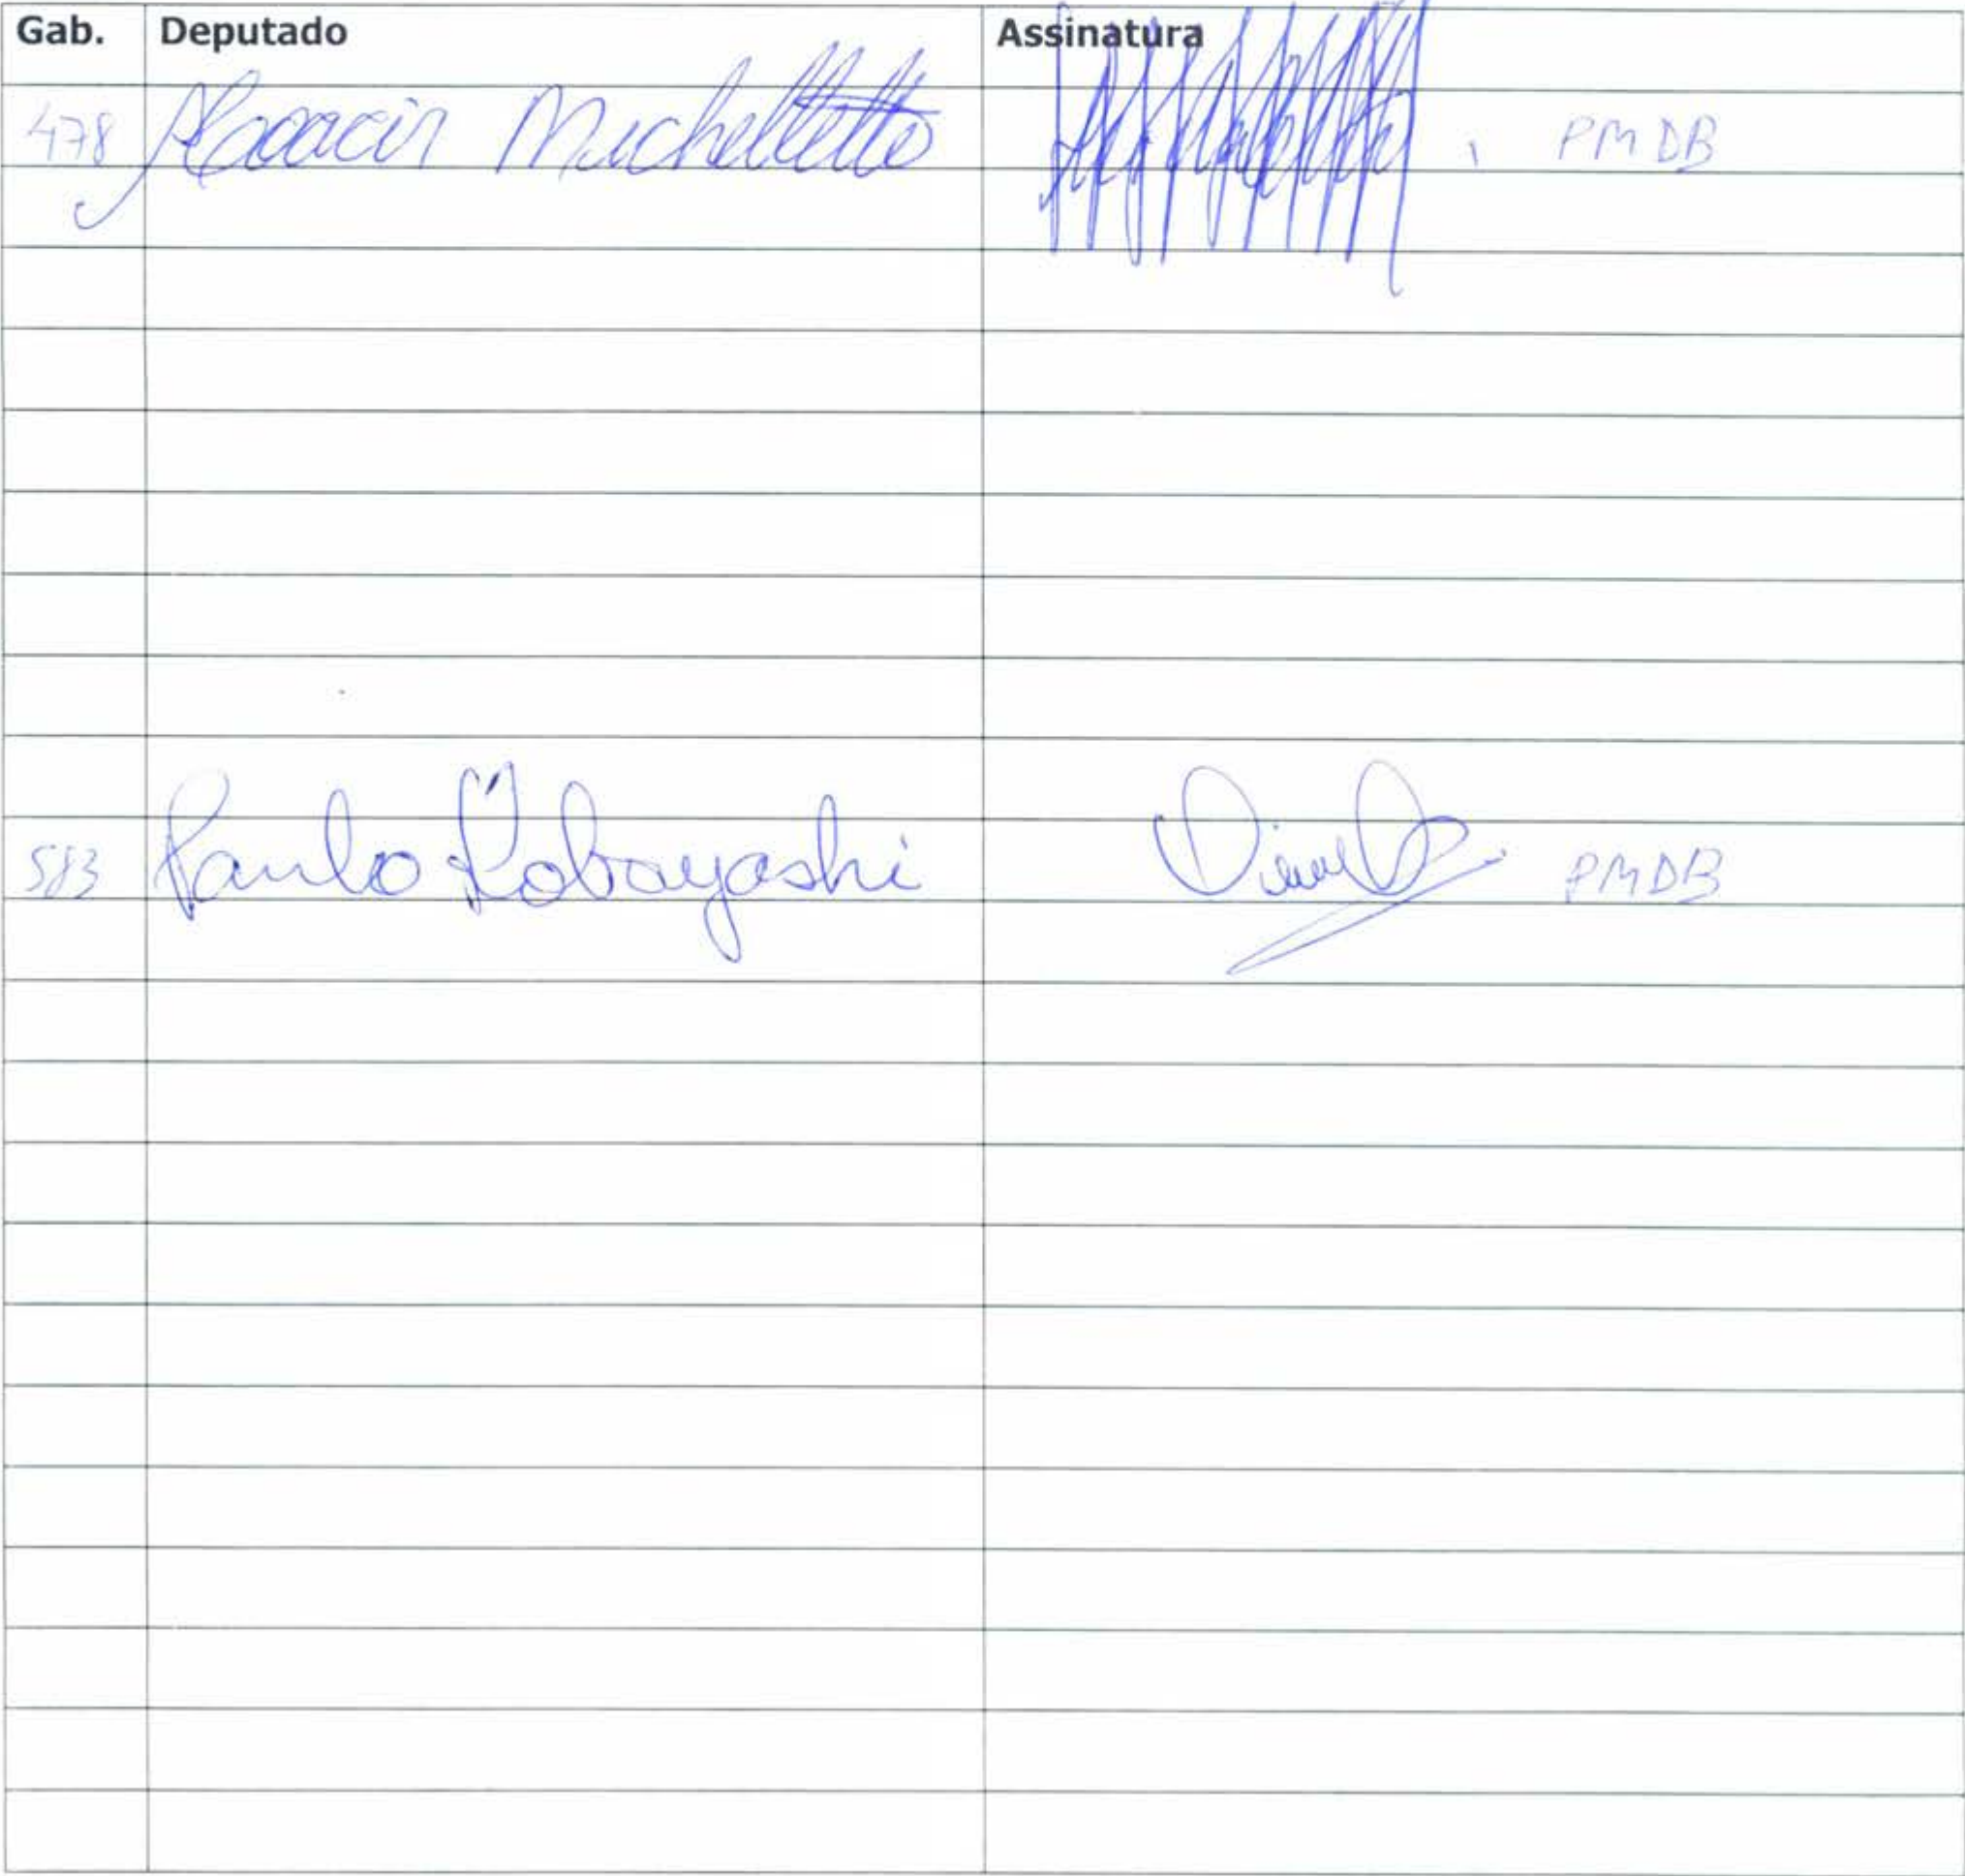 Gab. Deputado Assinatura
478 Moacir Micheletto PMDB
583 Paulo Kobayashi PMDB